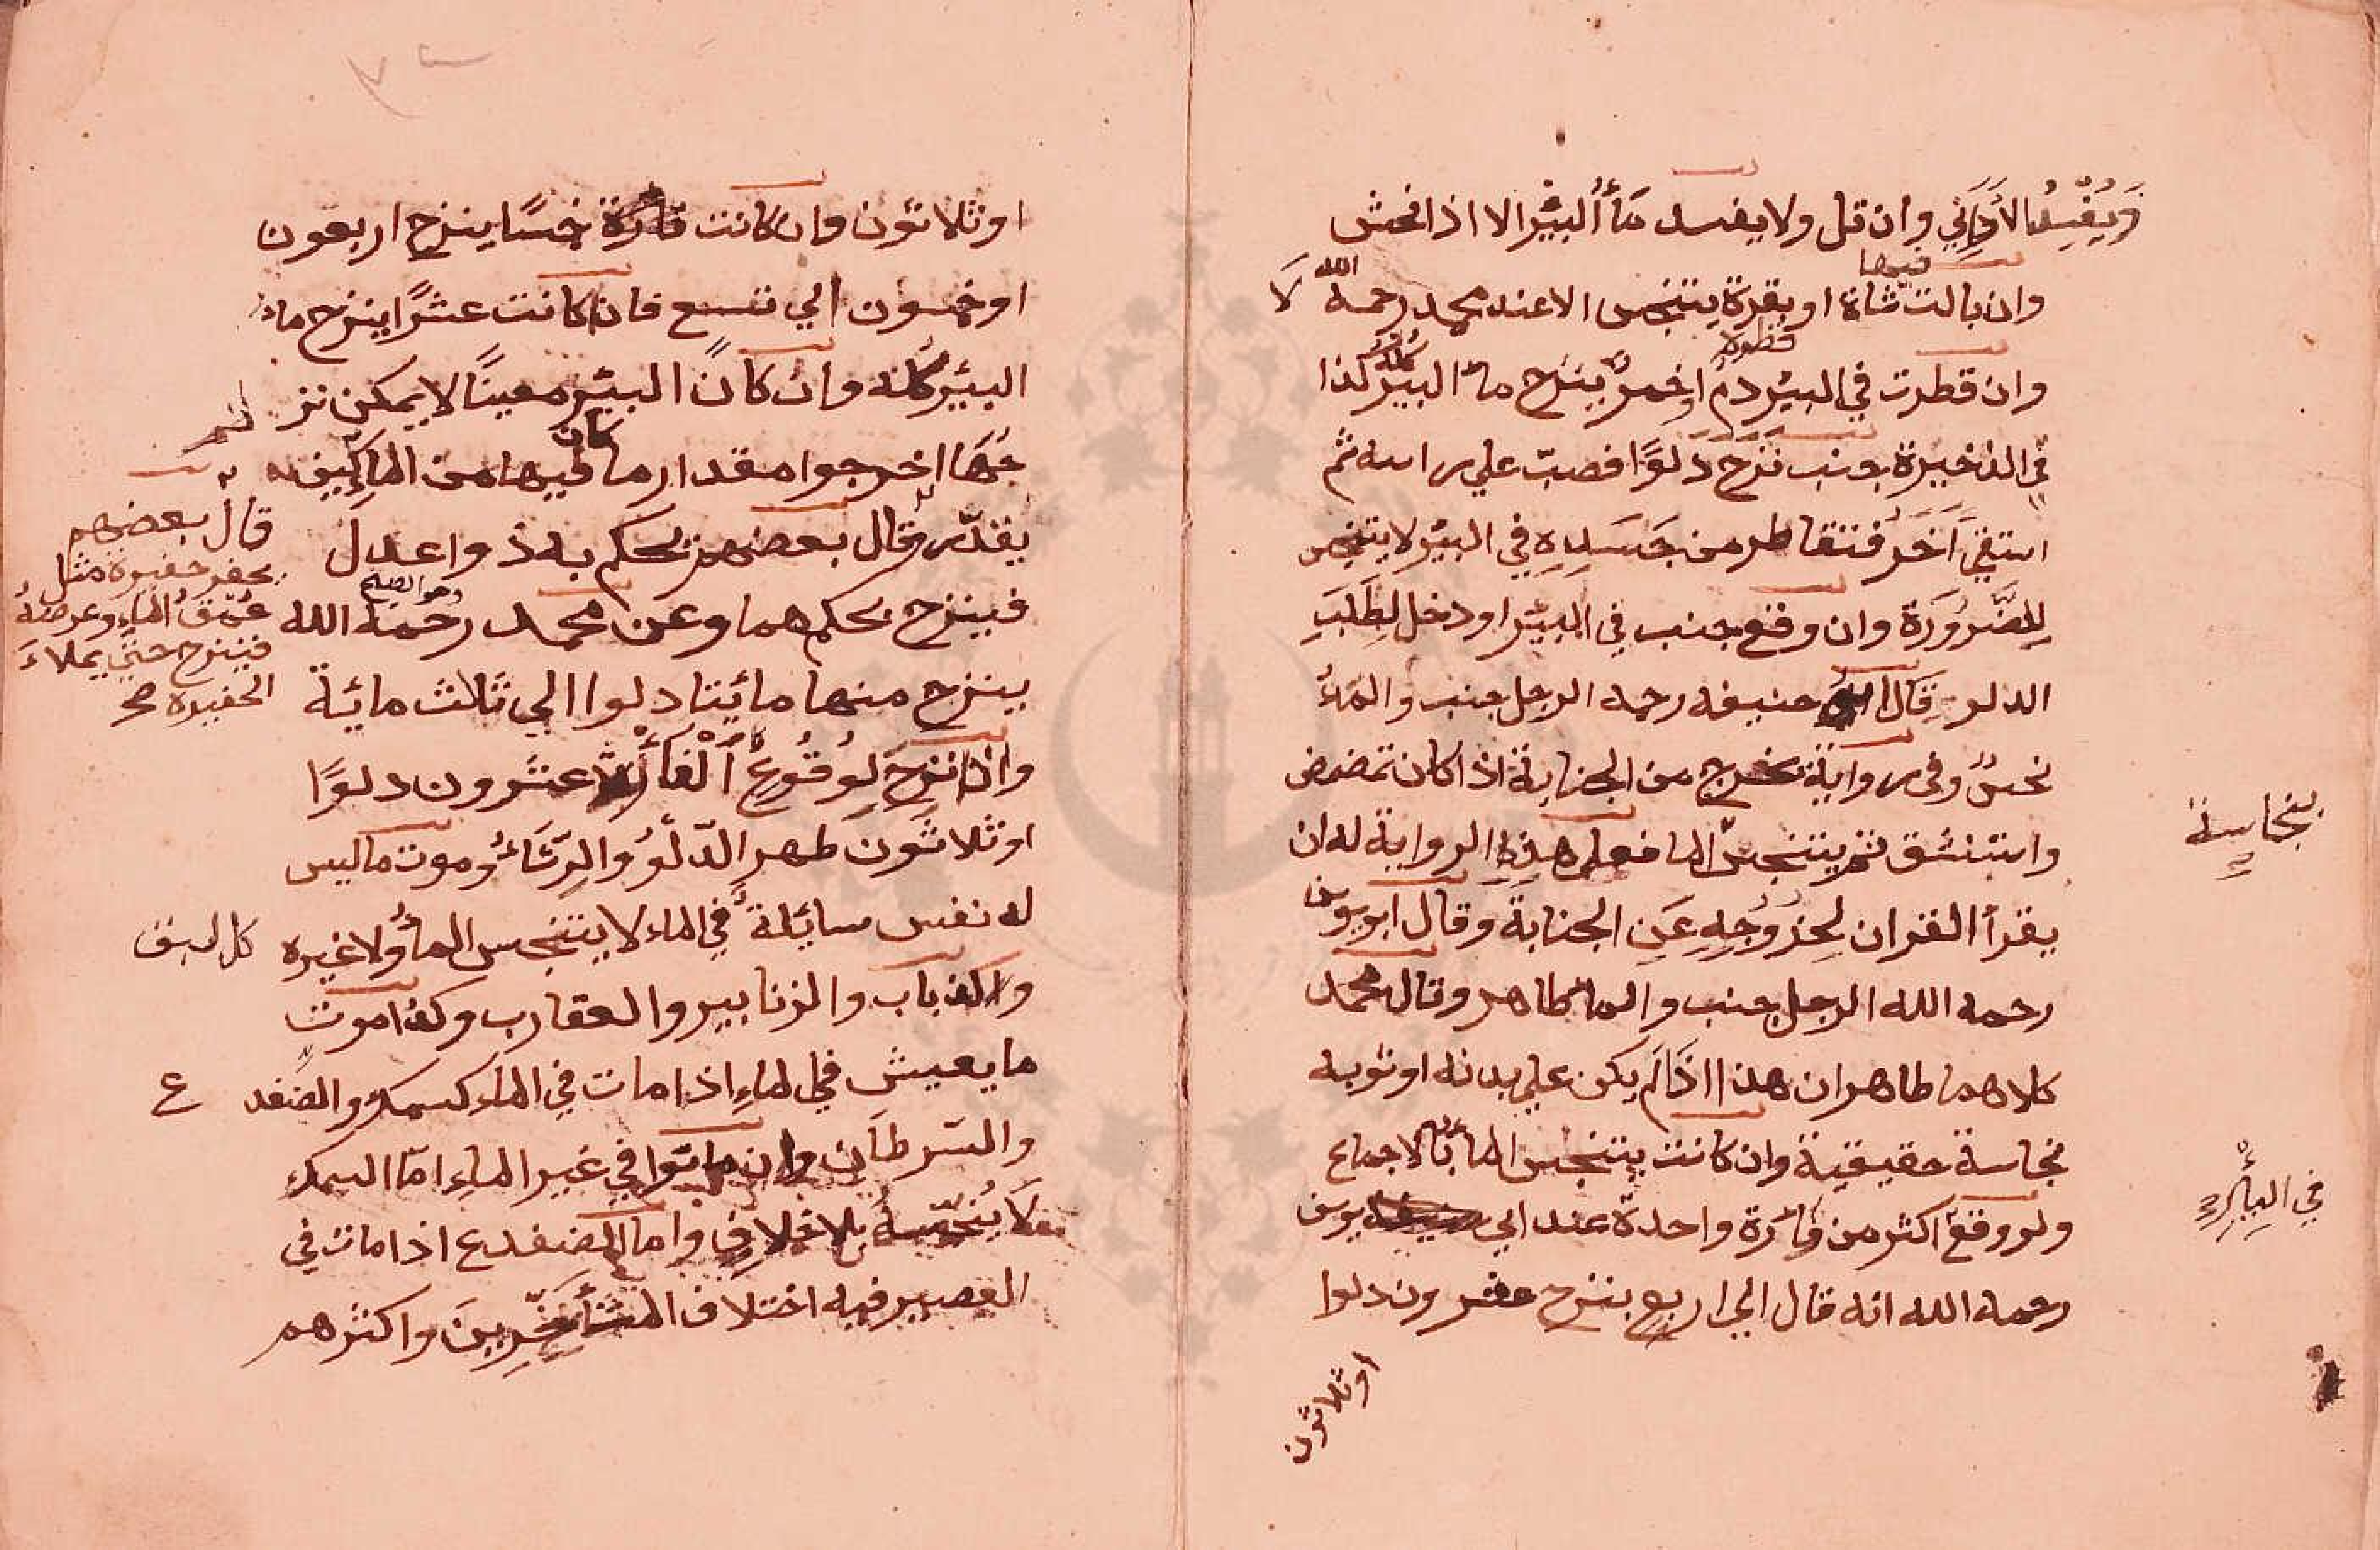 وَيُفْسِدُ الأَوَانِي وان قل ولا يفسد مَاءُ البِيْر الا اذا فحش
وان بالت فيها شاة او بقرة يتنجس الا عند محمد رحمه الله لا
وان قطرت في البير قطرة دم او خمر ينزح ماء البير كله كذا
في الذخيرة جنب نَزَحَ دَلوًا فصبّ علي راسه ثم
استقي آخَرَ فتقاطر من جَسَدِهِ في البير لا يتنجس
لِلضَّرُورَةِ وان وقع جنب في البير او دخل لِطَلَبِ
الدلو قال ابو حنيفه رحمه الرجل جنب والمَاءُ
نجسٌ وفي رواية يخرج من الجنابة اذا كان تمضمض
واستنشق ثم يتنجس الما فعلي هذِهِ الرواية له ان
يقرأ القران لِخُرُوجِهِ عَنِ الجنابة وقال ابو يوسف
رحمه الله الرجل جنب والماء طاهر وقال محمد
كلاهما طاهران هذا اذَا لَم يكن علي بدنه او ثوبه
نجاسة حقيقية وان كانت يتنجس الماء بالاجماع
ولو وقع اكثر من فَأرَة واحدة عند ابي يوسف
رحمه الله انه قال الي اربع ينزح عشرون دلوا
او ثلاثون
نجاسة
في البِئرِ
او ثلاثون وان كانت فأرة خمسًا ينزح اربعون
او خمسون الي تسع فان كانت عشرًا ينزح ماء
البئر كله وان كان البئر معينًا لا يمكن نز
حُهَا اخرجوا مقدار ما كان فيها من الماءِ كيف
يقدّر قال بعضهم يحكم به ذوا عدل
فينزح بحكمهما وعن محمد رحمَهُ الله
ينزح منها مائتا دلوا الي ثلاث مائة
واذا نزح لِوُقُوعِ الْفَأْرَةِ عشرون دلوًا
او ثلاثون طهر الدّلْوُ والرِّشَاءُ وموت ما ليس
له نفس سائلة في الماء لا يتنجس الماءُ ولا غيره كالبق
والذباب والزنابير والعقارب وكذا موت
ما يعيش في الماءِ اذا مات في الماء كسمك والضفد ع
والسرطان وان ماتوا في غير الماءِ امّا السمك
فلا يُنَجِّسهُ بلا خلاف واما الضفدع اذا مات في
العصير فيه اختلاف المتأخّرِينَ واكثرهم
قال بعضهم
يحفر حفيرة مثل
عُمْقِ الماءِ وعرضهُ
فينزح حتي يملاءَ
الحفيرة صح
وهو الصحيح